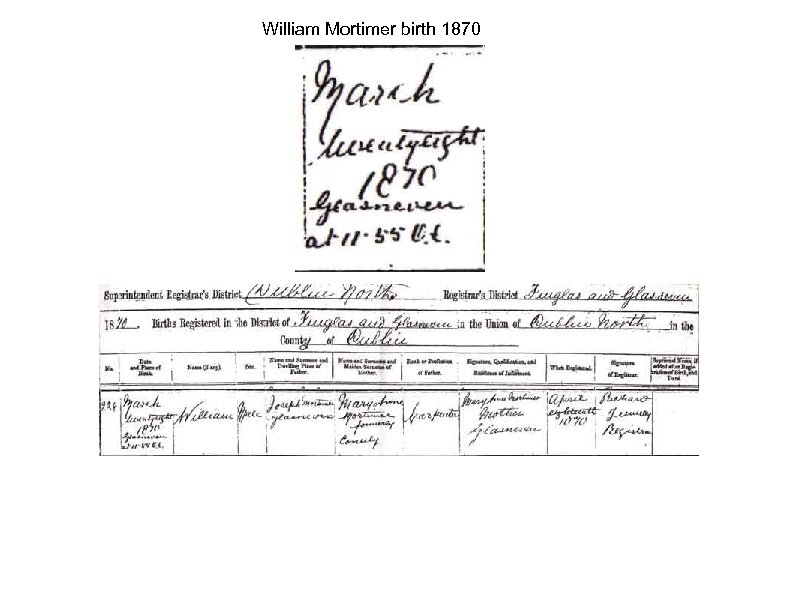 William Mortimer birth 1870
March
twentyeight
1870
Glasneven
at 11·55
Superintendent Registrar's District Dublin North Registrar's District Finglas and Glasneven
1870. Births Registered in the District of Finglas and Glasneven in the Union of Dublin North in the
County of Dublin
No. Date and Place of Birth. Name (if any). Sex. Name and Surname and Dwelling Place of Father. Name and Surname and Maiden Surname of Mother. Rank or Profession of Father. Signature, Qualification, and Residence of Informant. When Registered. Signature of Registrar. Baptismal Name, if added after Registration of Birth, and Date
March twentyeight 1870 Glasneven at 11·55 William Male Joseph Mortimer Glasneven Mortimer formerly Carpenter Mortimer Mother Glasneven April eighteenth 1870 Richard Registrar